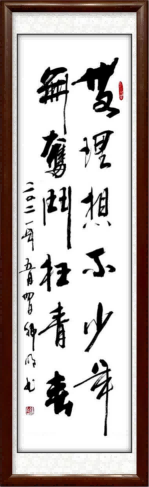 無理想不少年
無奮鬥枉青春
二〇二一年五月